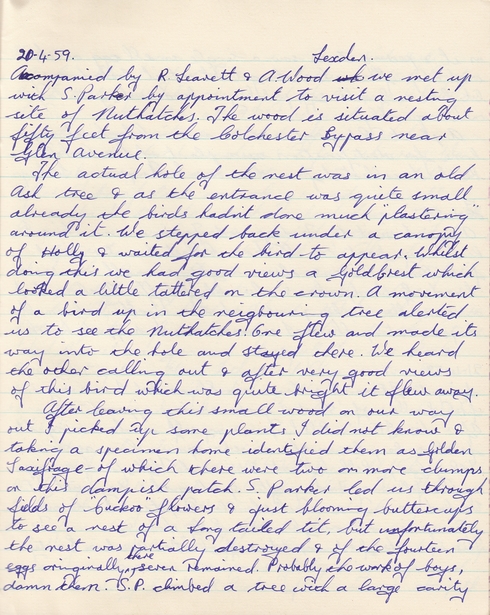 20-4-59. Lexden.
Accompanied by R. Leavett & A. Wood we met up
with S. Parker by appointment to visit a nesting
site of Nuthatches. The wood is situated about
fifty feet from the Colchester Bypass near
Glen Avenue.
The actual hole of the nest was in an old
Ash tree & as the entrance was quite small
already the birds hadnt done much "plastering"
around it. We stepped back under a canopy
of Holly & waited for the bird to appear. Whilst
doing this we had good views a GoldCrest which
looked a little tattered on the crown. A movement
of a bird up in the neigbouring tree alerted
us to see the Nuthatches. One flew and made its
way into the hole and stayed there. We heard
the other calling out & after very good views
of this bird which was quite bright it flew away.
After leaving this small wood on our way
out I picked up some plants I did not know &
taking a specimen home identified them as Golden
Saxifrage - of which there were two or more clumps
on this dampish patch. S. Parker led us through
fields of "Cuckoo" flowers & just blooming buttercups
to see a nest of a Long tailed tit, but unfortunately
the nest was partially destroyed & of the fourteen
eggs originally there, seven remained. Probably the work of boys,
damn them. S.P. climbed a tree with a large cavity